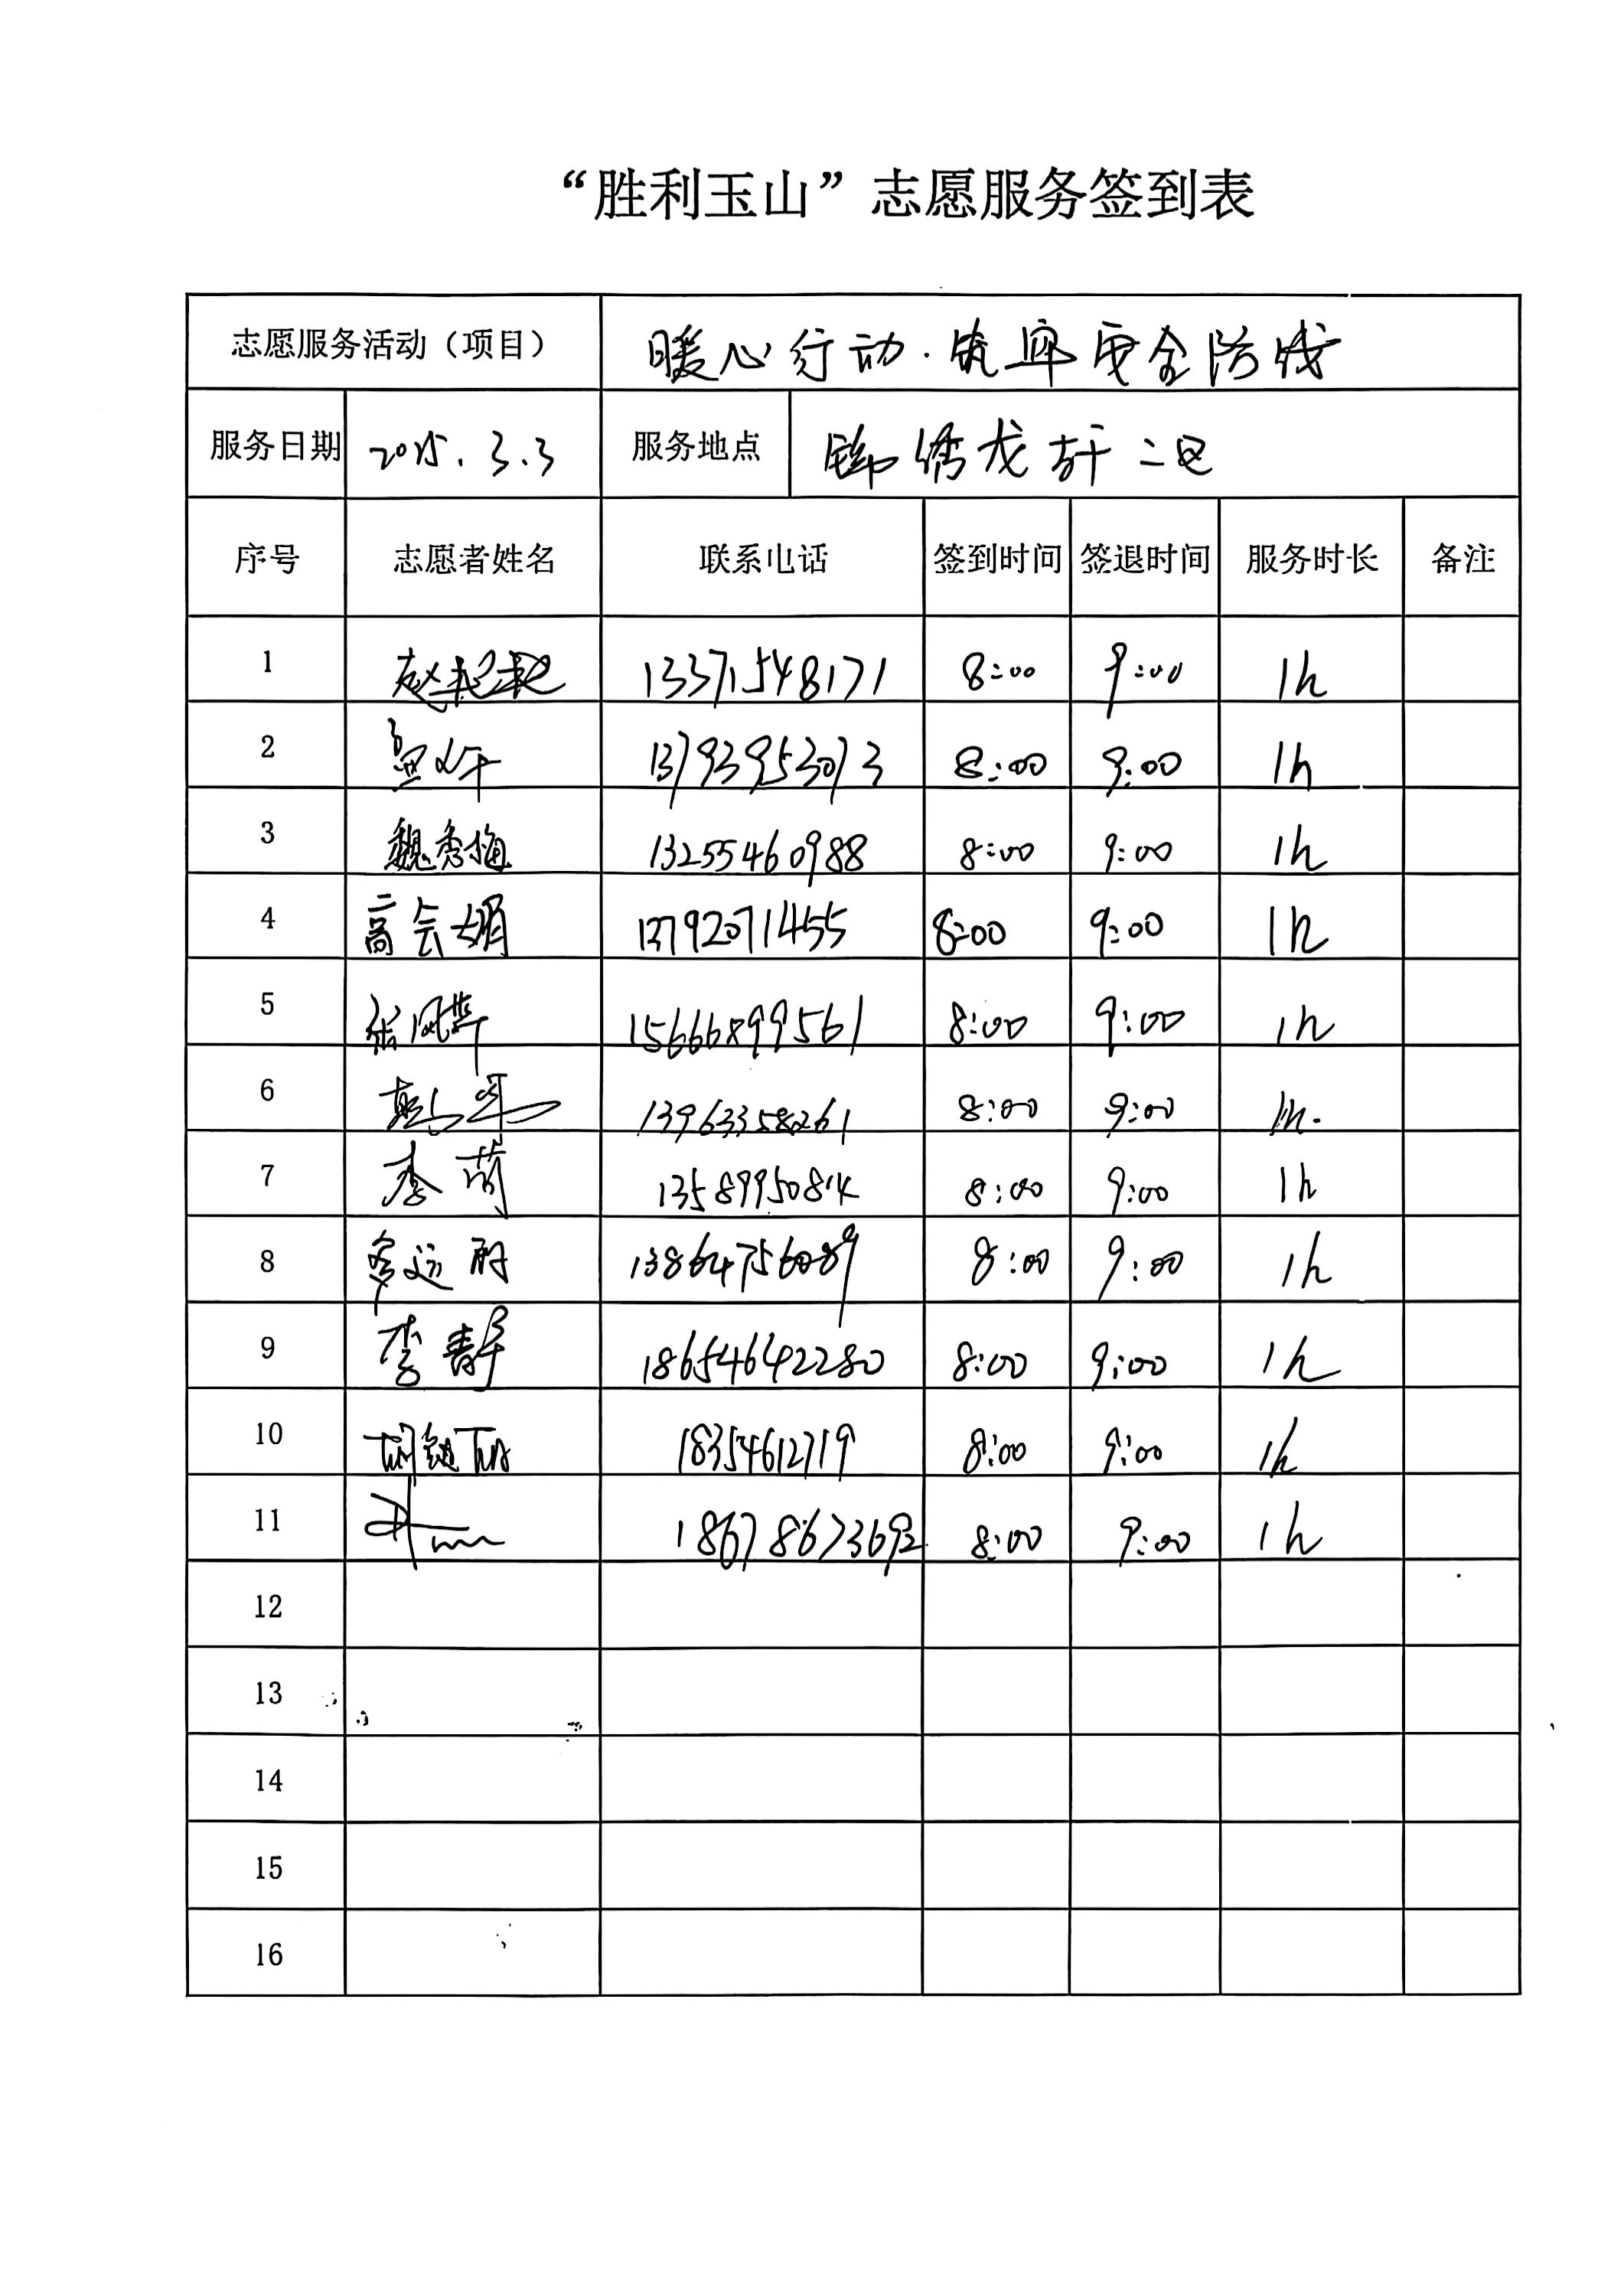 “胜利玉山”志愿服务签到表
志愿服务活动（项目） 暖心行动·筑牢安全防线
服务日期 2025.3.3 服务地点 锦绣龙轩二区
序号 志愿者姓名 联系电话 签到时间 签退时间 服务时长 备注
1 赵艳艳 13371548171 8:00 9:00 1h
2 13793953073 8:00 9:00 1h
3 魏秀梅 13255460988 8:00 9:00 1h
4 高会娟 13792071455 8:00 9:00 1h
5 张凤华 15666899561 8:00 9:00 1h
6 13963358261 8:00 9:00 1h.
7 李萌 13589950814 8:00 9:00 1h
8 13864756089 8:00 9:00 1h
9 李静 18654642280 8:00 9:00 1h
10 18354612719 8:00 9:00 1h
11 18678673692 8:00 9:00 1h
12
13
14
15
16